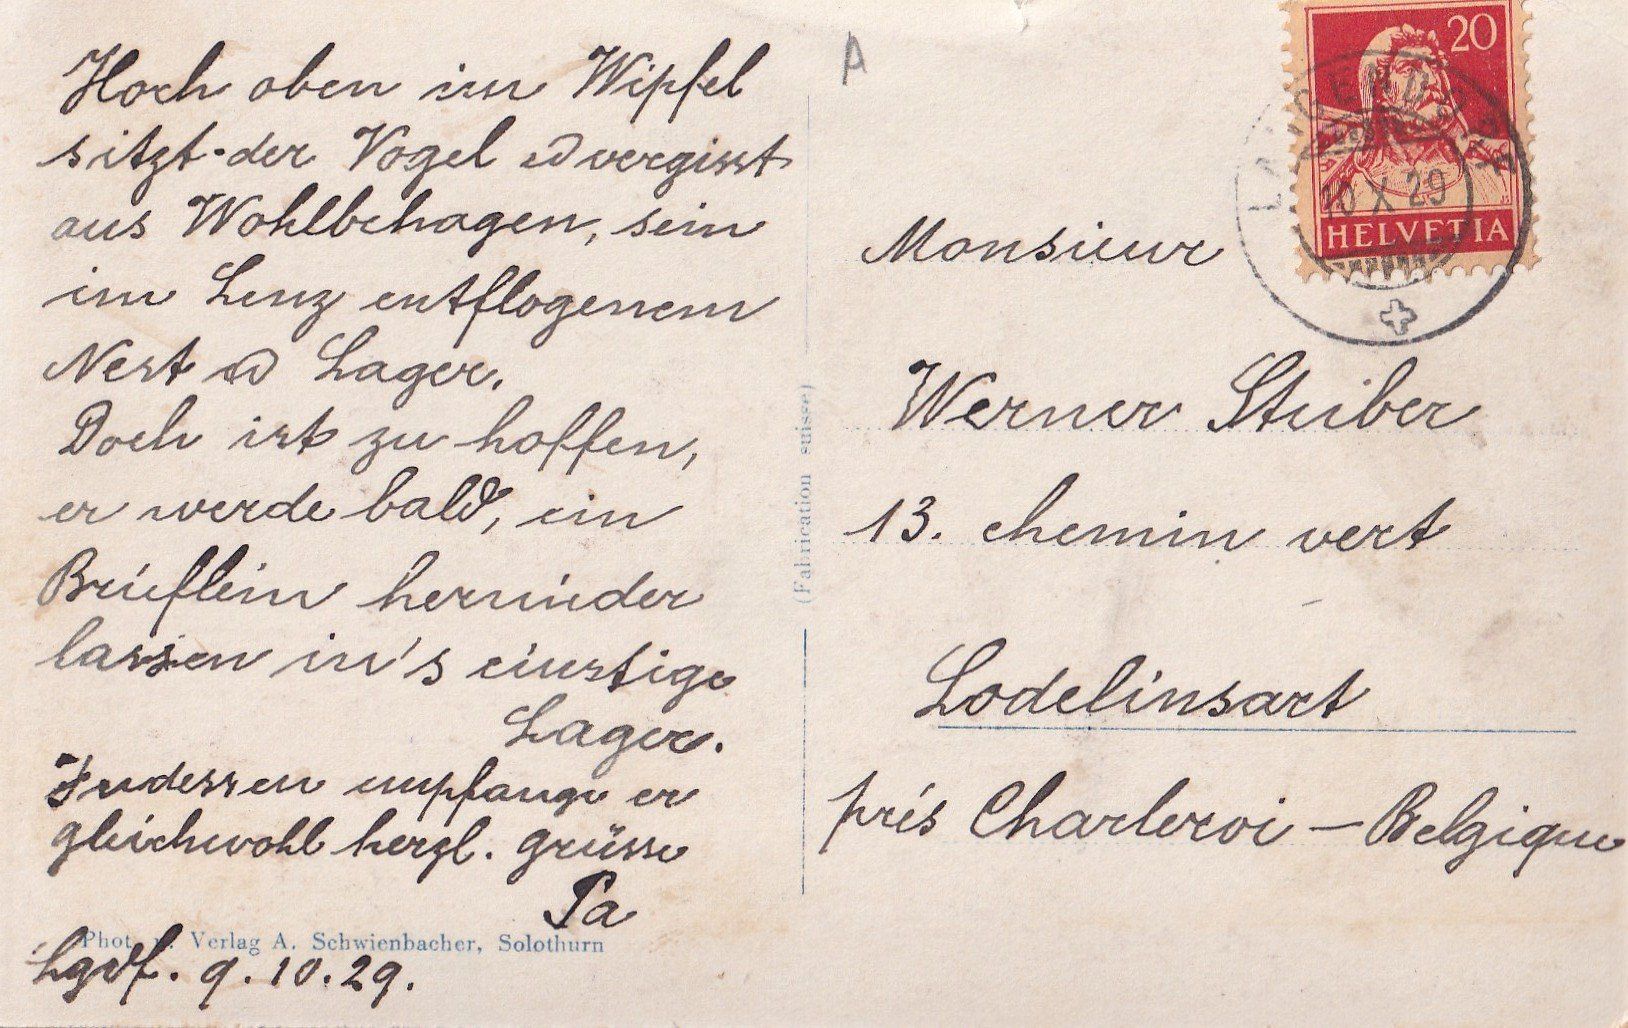 Hoch oben im Wipfel
sitzt der Vogel u vergisst
aus Wohlbehagen, sein
im Lenz entflogenem
Nest u Lager.
Doch ist zu hoffen,
er werde bald, ein
Brieflein herunder
lassen in's einstige
Lager.
Indessen empfange er
gleichwohl herzl. Grüsse
Pa
Phot. u. Verlag A. Schwienbacher, Solothurn
Lgdf. 9.10.29.
(Fabrication suisse)
A
20
HELVETIA
LANGENDORF
10 X 29
Monsieur
Werner Stüber
13. chemin vert
Lodelinsart
près Charleroi — Belgique